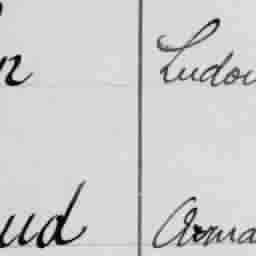 n Ludov
ud Arma